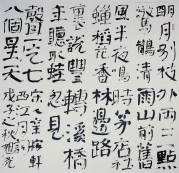 明月別枝
驚鵲清
風半夜鳴
蟬稻花香
裏說豐
年聽取蛙
聲一片七
八個星天
外兩三點
雨山前舊
時茅店社
林邊路
轉溪橋
忽見
宋辛稼軒
西江月詞
戊子之秋旭光